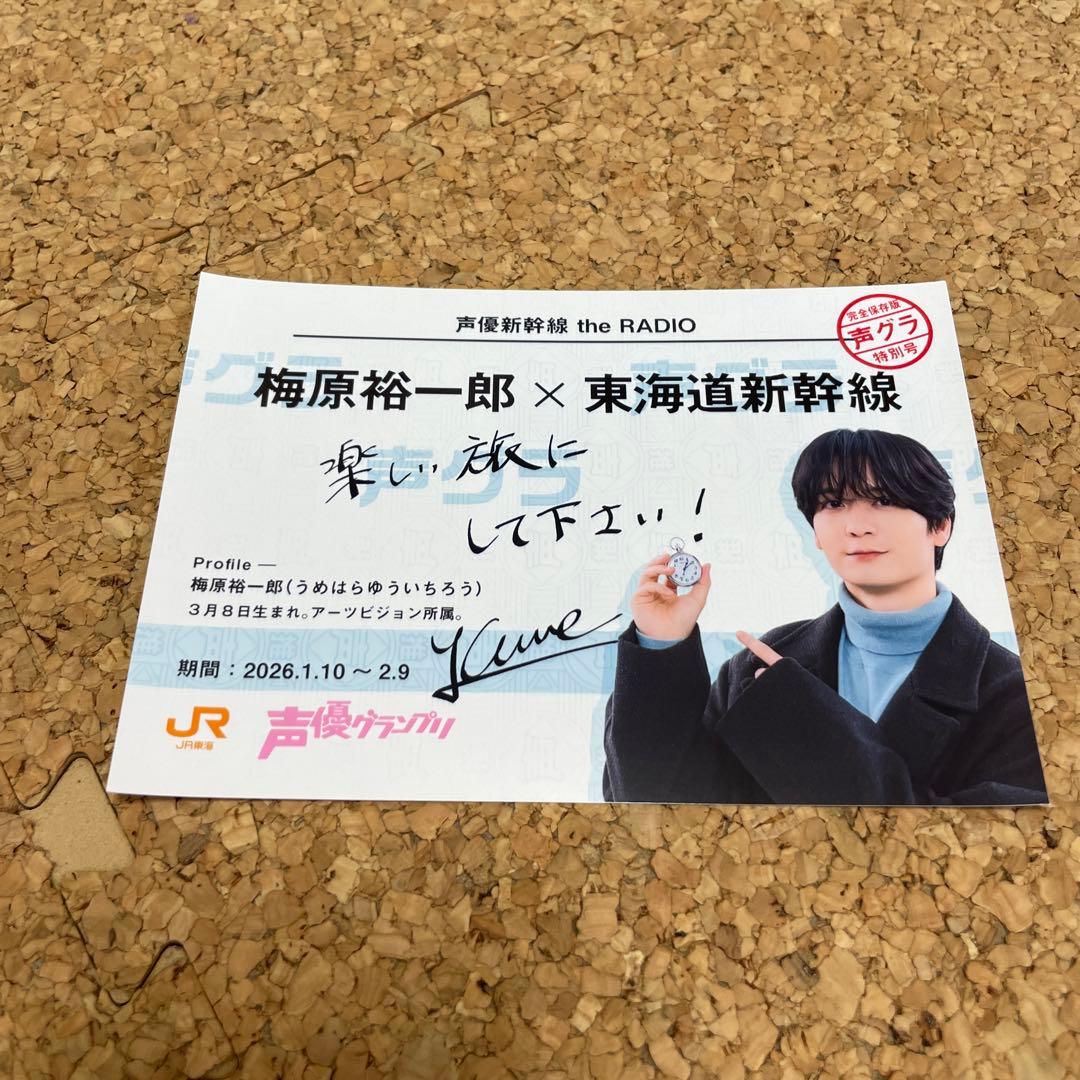 声優新幹線 the RADIO
完全保存版
声グラ
特別号
梅原裕一郎 × 東海道新幹線
楽しい旅に
して下さい!
Profile —
梅原裕一郎(うめはらゆういちろう)
3月8日生まれ。アーツビジョン所属。
期間:2026.1.10~2.9
JR
JR東海
声優グランプリ
声グラ
声グラ
声グラ